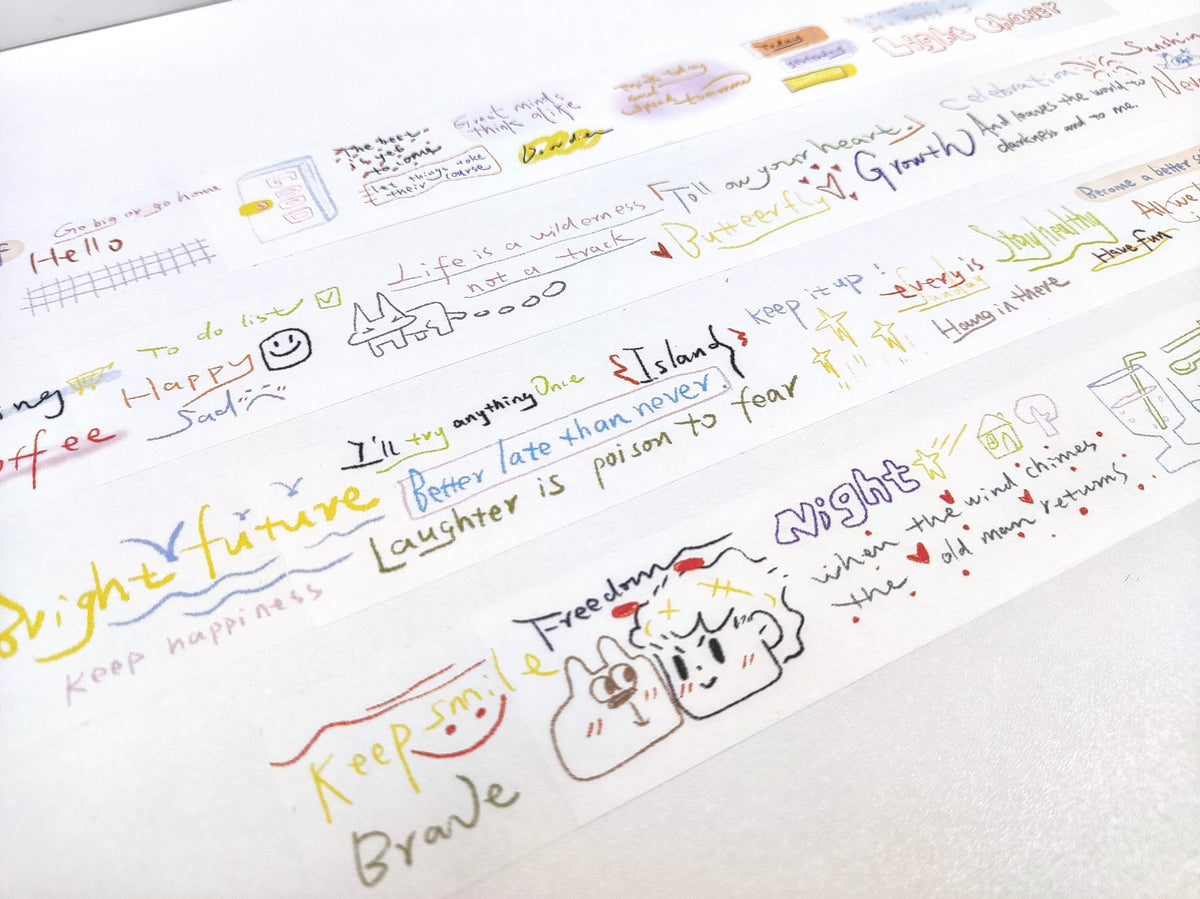 Go big or go home
Hello
The best
is yet
to come
let things take
their course
Great minds
think alike
make today
and
tomorrow
today
Light Chaser
To do list
Happy
Sad
Life is a wilderness
not a track
Foll ow your heart.
Butteerfly
Growth
Celebration
And leaves the world to
darkness and to me.
Sunshin
ing
offee
I'll try anything Once
{Island}
Better late than never.
Laughter is poison to fear
keep it up!
every is
Sunday
Hang in there
Stay healthy
Have fun
Become a better
All we
Bright future
keep happiness
Keep smile
Brave
Freedom
Night
when the wind chimes
the old man returns